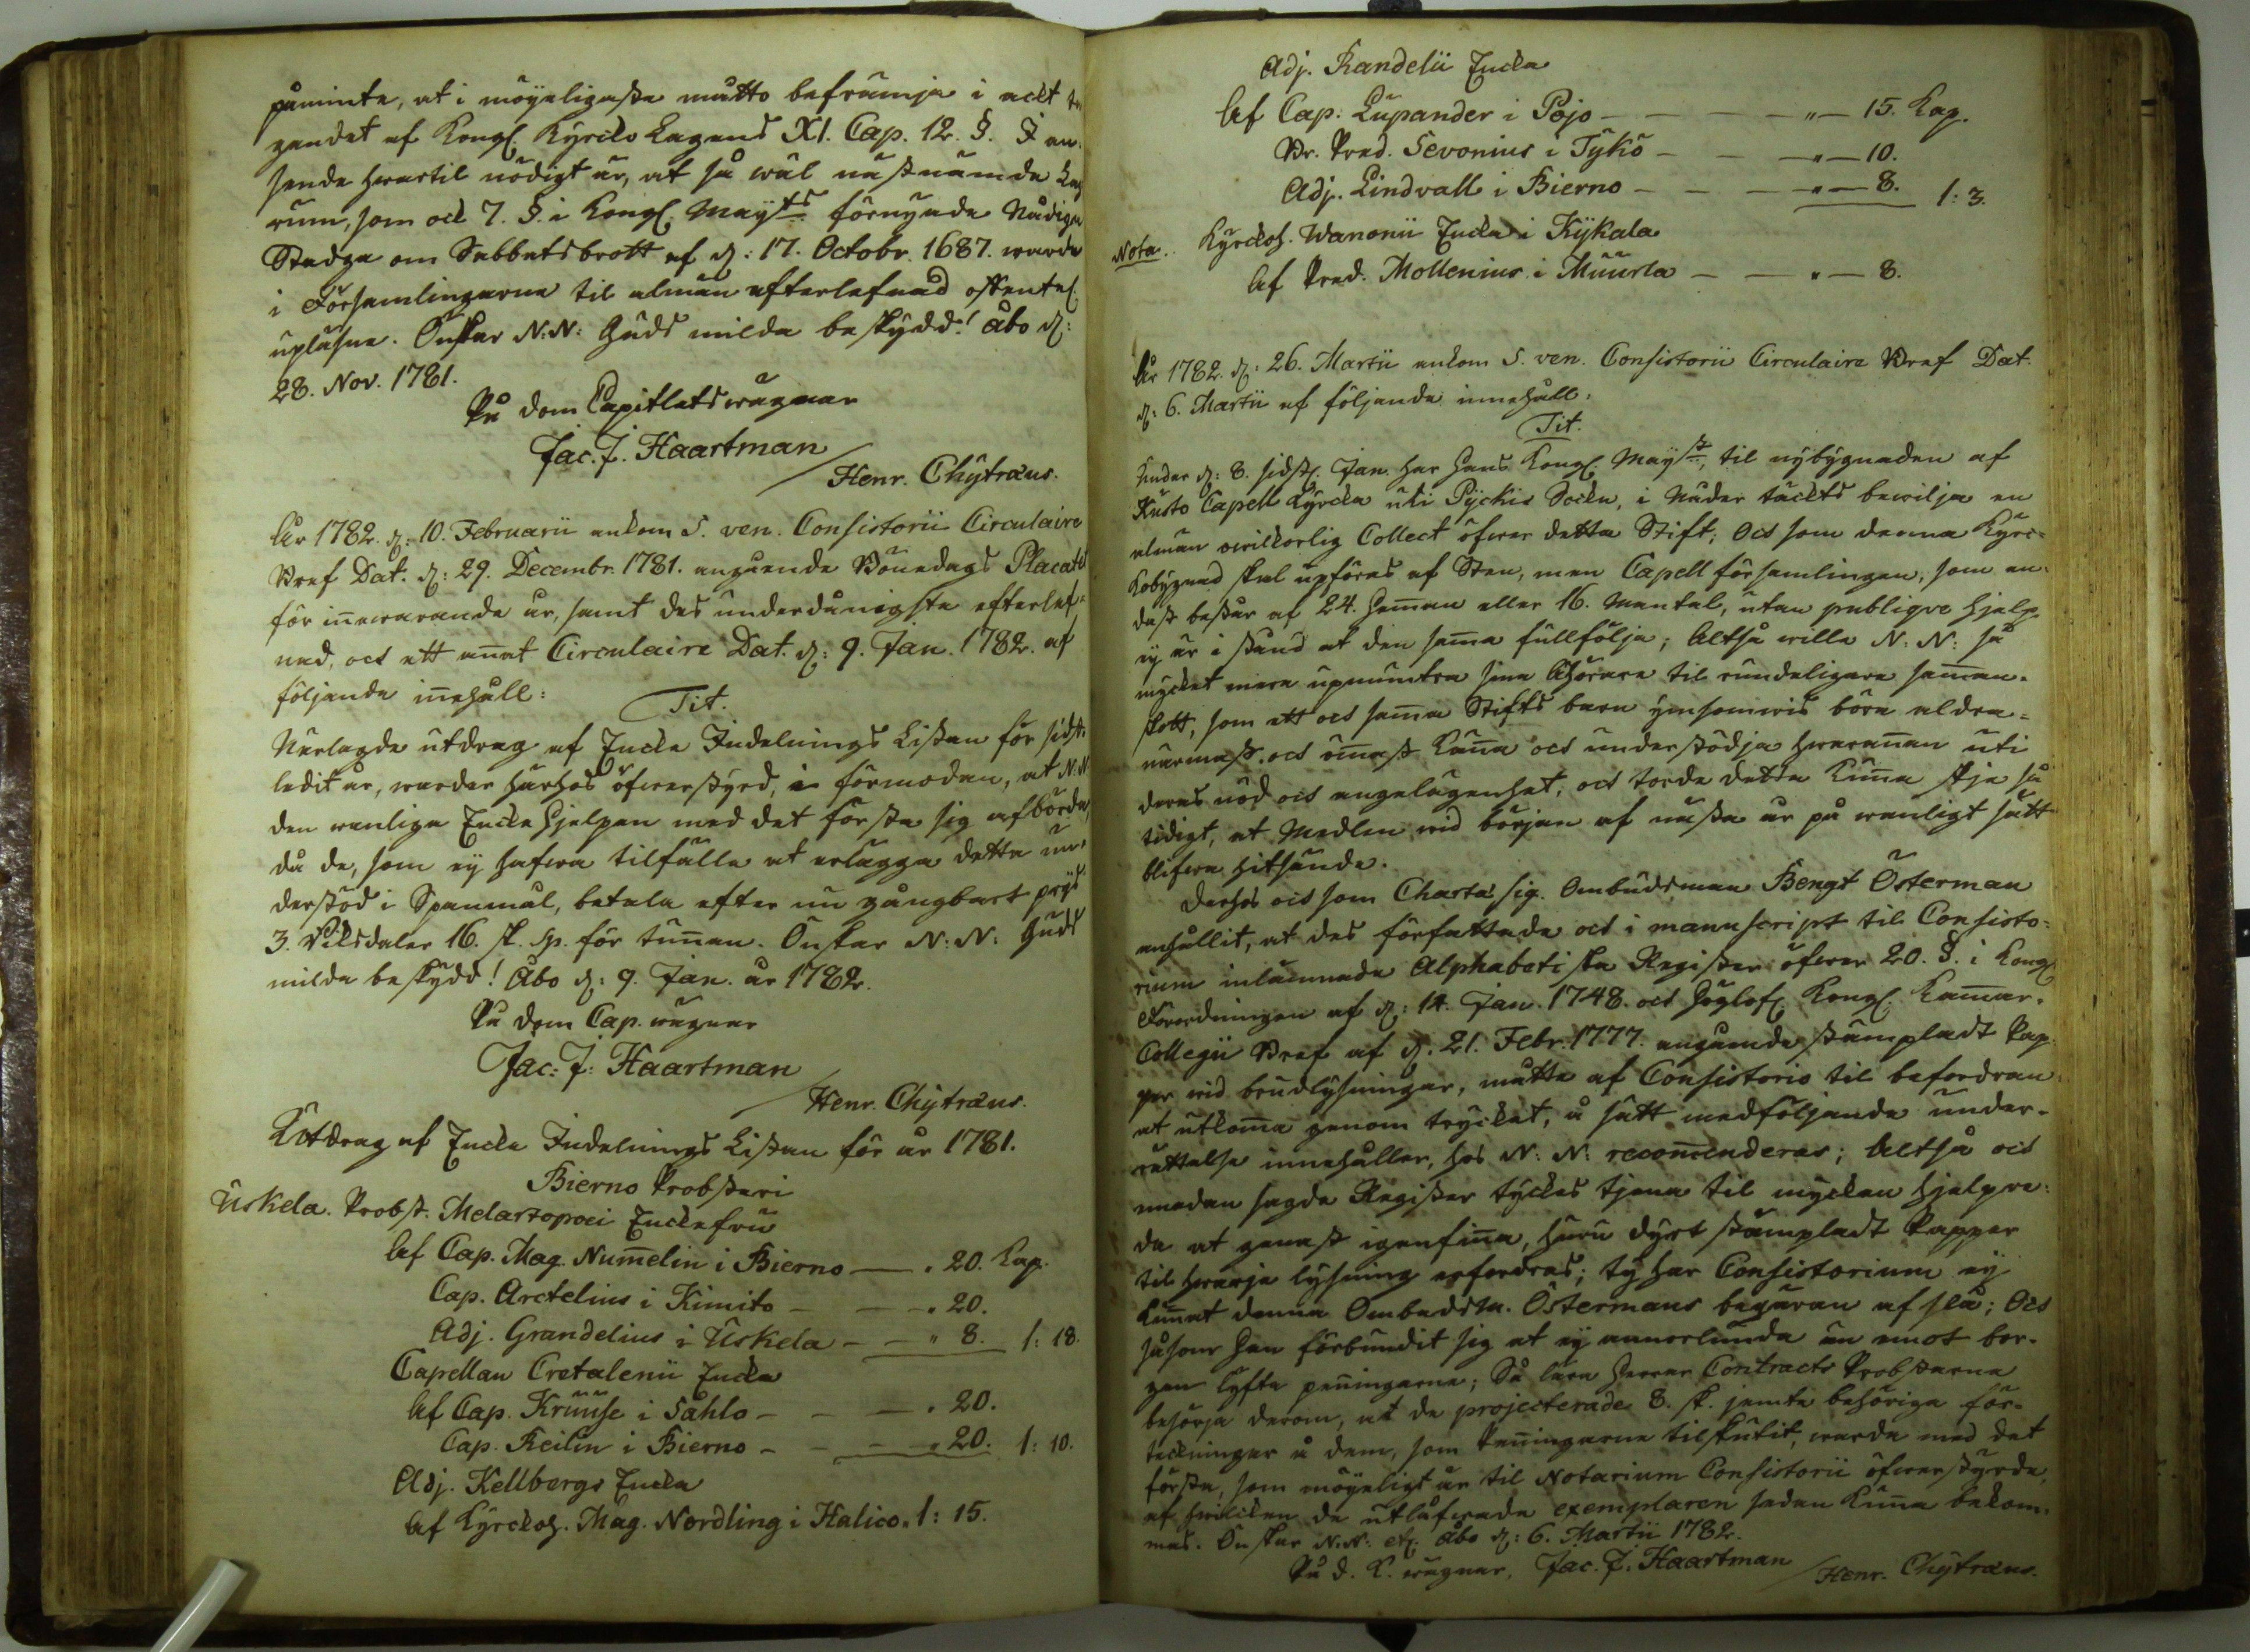 påminte, at i möyeligaste måtto befrämja i ackt ta
gandet af Kongl. Kyrcko Lagens XI. Cap. 12. §. I an¬
seende hwartil nödigt är, at så wäl näst nämde Lag
rum, som ock 7. §. i Kongl. Maÿts förnyade Nådiga
Stadga om Sabbatsbrott af d: 17. Octobr. 1687. warda
i Församlingarne til almän efterlefnad offentel.
upläsne. Önskar N:N: Guds milda beskydd! Åbo d:
28. Nov. 1781.
På dom Capitlets wägnar
Jac. J. Haartman
/ Henr. Chÿtræus.
År 1782. d: 10. Februarii ankom S. ven. Consistorii Circulaire
Bref Dat. d: 29. Decembr. 1781. angående Bönedags Placatet
för innewarande år, samt des underdånigste efterlef¬
nad, och ett annat Circulaire Dat. d: 9. Jan. 1782. af
följande innehåll:
Tit.
Närlagde utdrag af Encke Indelnings Listan för sidst
ledit år, warder härhos öfwerstyrd, i förmodan, at N.N.
den wanliga Encke hjelpen med det första sig afbörda,
då de, som ey hafwa tilfälle at erlägga detta un¬
derstöd i Spanmål, betala efter nu gångbart prÿs
3. Riksdaler 16. sk. sp. för tunnan. Önskar N: N: Guds
milda beskydd! Åbo d: 9. Jan. år 1782.
På dom Cap. wägnar
Jac: J: Haartman
/ Henr. Chÿtræus.
Utdrag af Encke Indelnings Listan för år 1781.
Bierno Probsteri
Uskela. Probst. Melartopoei Enckefru
Af Cap. Mag. Numelin i Bierno — „ 20. Kap.
Cap. Arctelius i Kimito — — „ 20.
Adj. Grandelius i Uskela — — „ 8. 1: 18.
Capellan Cretalenii Encka
Af Cap. Krüüse i Sahlo — — — „ 20.
Cap. Reilin i Bierno — — — „ 20. 1: 10.
Adj. Kellbergs Encka
Af Kyrckoh. Mag. Nordling i Halico „ 1: 15.
Adj. Randelii Encka
Af Cap. Lupander i Pojo — — — — „ — 15. Kap.
Br. Pred. Sevonius i Tÿkö — — — „ — 10.
Adj. Lindvall i Bierno — — — „ — 8. 1: 3.
Nota. Kyrckoh. Wanonii Encka i Kÿkala
Af Pred. Mollenius i Muurla — — „ — 8.
År 1782. d: 26. Martii ankom S. ven. Consistorii Circulaire Bref Dat.
d: 6. Martii af följande innehåll:
Tit.
Under d: 8. sidstl. Jan. har Hans Kongl. Maÿst. til nybygnaden af
Kusto Capell Kyrcka uti Pÿckis Sockn, i Nåder täckts bewilja en
almän owilkorlig Collect öfwer detta Stift; Och som denna Kyrc¬
kobygnad skal upföras af Sten, men Capell församlingen, som en¬
dast består af 24. Hemman eller 16. Mantal, utan publique hjelp
ey är i stånd at den samma fullfölja; Altså wille N: N: så
mycket mera upmuntra sina Åhörare til rundeligare samman¬
skott, som ett och samma Stifts barn ymsomwis böra aldra¬
närmast och ömast känna och understödja hwarannan uti
deras nöd och angelägenhet; och torde detta kunna skje så
tidigt, at Medlen wid början af nästa år på wanligt sätt
blifwa hitsände.
Derhos och som Charta sig. Ombudsman Bengt Österman
anhållit, at des författade och i manuscript til Consisto¬
rium inlämnade Alphabetiska Register öfwer 20. §. i Kongl.
Förordningen af d: 14. Jan. 1748. och Höglofl. Kongl. Kammar.
Collegii Bref af d. 21. Febr. 1777. angående stämpladt Pap¬
per wid brudlysningar, måtte af Consistorio til befordran
at utkomma genom trycket, å sätt medföljande under¬
rättelse innehåller, hos N: N: recommenderas; Altså och
emedan sagde Register tyckes tjena til mycken hjelpre¬
da at genast igenfinna, huru dyrt stämpladt Papper
til hwarje lysning erfordras; ty har Consistorium ey
kunnat denna Ombudsm. Östermans begäran afslå; Och
såsom han förbundit sig at ey annorlunda än emot bor¬
gen lyfta penningarne; Så lära Herrar Contracts Probstarne
besörja derom, at de projecterade 8. sk. jemte behöriga för¬
teckningar å dem, som Penningarne tilskutit, warda med det
första, som möyeligt är til Notarium Consistorii öfwerstyrde,
af hwilcken de utlåfwade exemplaren sedan kunna bekom¬
mas. Önskar N.N: etc. Åbo d: 6. Martii 1782.
På D. C. wägnar, Jac. J. Haartman / Henr. Chÿtræus.